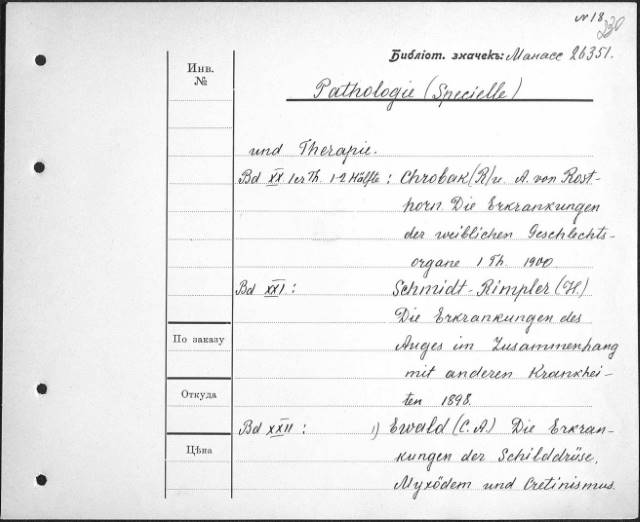 № 18
230
Библіот. значекъ: Манасс 26351.
Инв.
№
Pathologie (Specielle)
und Therapie.
Bd XX 1er Th. 1-2 Hälfte: Chrobak (R) u. A. von Rost-
horn Die Erkrankungen
der weiblichen Geschlechts-
organe 1 Th. 1900
Bd XXI: Schmidt-Rimpler (H.)
Die Erkrankungen des
По заказу
Auges im Zusammenhang
mit anderen Krankhei-
Откуда
ten 1898.
Bd XXII: 1) Ewald (C. A) Die Erkran-
Цѣна
kungen der Schilddrüse,
Myxödem und Cretinismus.